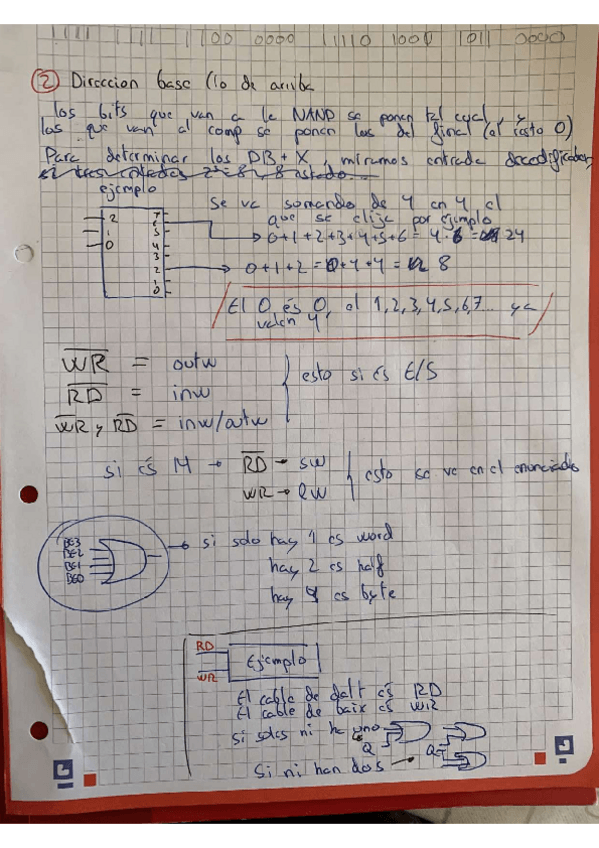 1111 1111 1100 0000 11110 1000 1011 0000
② Direccion base (lo de arriba
los bits que van a la NAND se ponen tal cual, y
los que van al comp se ponen los del final (al resto 0)
Para determinar los DB + X, miramos entrada decodificador
ejemplo
se va sumando de 4 en 4, el
que se elija por ejemplo
2 7
1 5
0 4
3
2
1
0
0+1+2+3+4+5+6 = 4·6 = 24
0+1+2 = 0+4+4 = 8
El 0 és 0, al 1,2,3,4,5,6,7... ya
valen 4
WR = outw
RD = inw
WR y RD = inw/outw
esto si és E/S
si és M → RD → sw
WR → lw
esto se ve en el enunciado
BE3
BE2
BE1
BE0
si solo hay 1 es word
hay 2 es half
hay 4 es byte
RD
WR
Ejemplo
El cable de dalt és RD
El cable de baix és WR
si soles ni ha uno
Q
Q
Si ni han dos